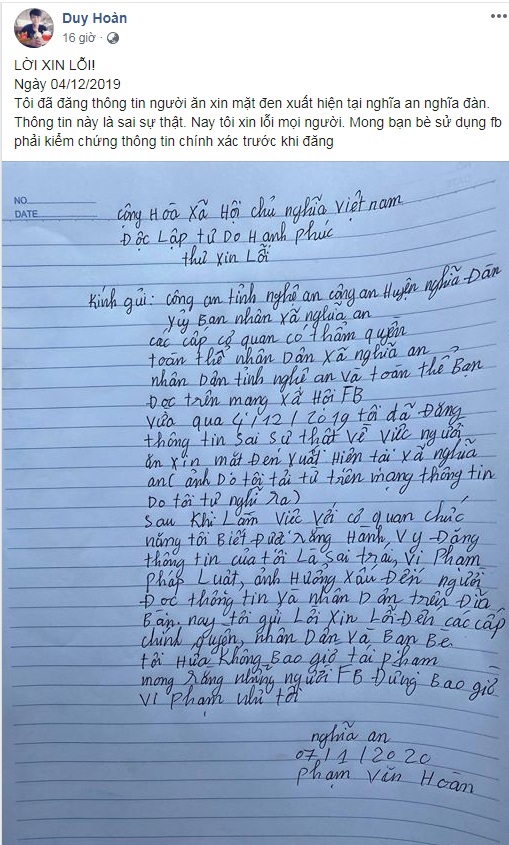 Duy Hoàn
16 giờ ·
LỜI XIN LỖI!
Ngày 04/12/2019
Tôi đã đăng thông tin người ăn xin mặt đen xuất hiện tại nghĩa an nghĩa đàn.
Thông tin này là sai sự thật. Nay tôi xin lỗi mọi người. Mong bạn bè sử dụng fb
phải kiểm chứng thông tin chính xác trước khi đăng
NO
DATE
Công Hoà Xã Hội chủ nghĩa Việt nam
Độc Lập tự Do Hạnh Phúc
thư xin Lỗi
Kính gửi: công an tỉnh nghệ an công an Huyện nghĩa-Dân
Uỷ Ban nhân xã nghĩa an
các cấp cơ quan có thẩm quyền
toàn thể nhân Dân xã nghĩa an
nhân Dân tỉnh nghệ an và toàn thể Bạn
Đọc trên mạng xã Hội FB
vừa qua 4/12/2019 tôi đã Đăng
thông tin sai sự thật về việc người
ăn xin mặt Đen xuất Hiện tại xã nghĩa
an (ảnh Do tôi tải từ trên mạng thông tin
Do tôi tự nghĩ ra)
Sau Khi Làm việc với cơ quan chức
năng tôi Biết Được rằng Hành vy Đăng
thông tin của tôi Là sai trái, vi Phạm
Pháp Luật, ảnh Hưởng xấu Đến người
Đọc thông tin và nhân Dân trên Địa
Bàn. nay tôi gửi Lời xin Lỗi Đến các cấp
chính quyền, nhân Dân và Bạn Bè.
tôi Hứa Không Bao giờ tái phạm
mong rằng những người FB Đừng Bao giờ
vi Phạm như tôi
nghĩa an
07/1/2020
Phạm Văn Hoàn